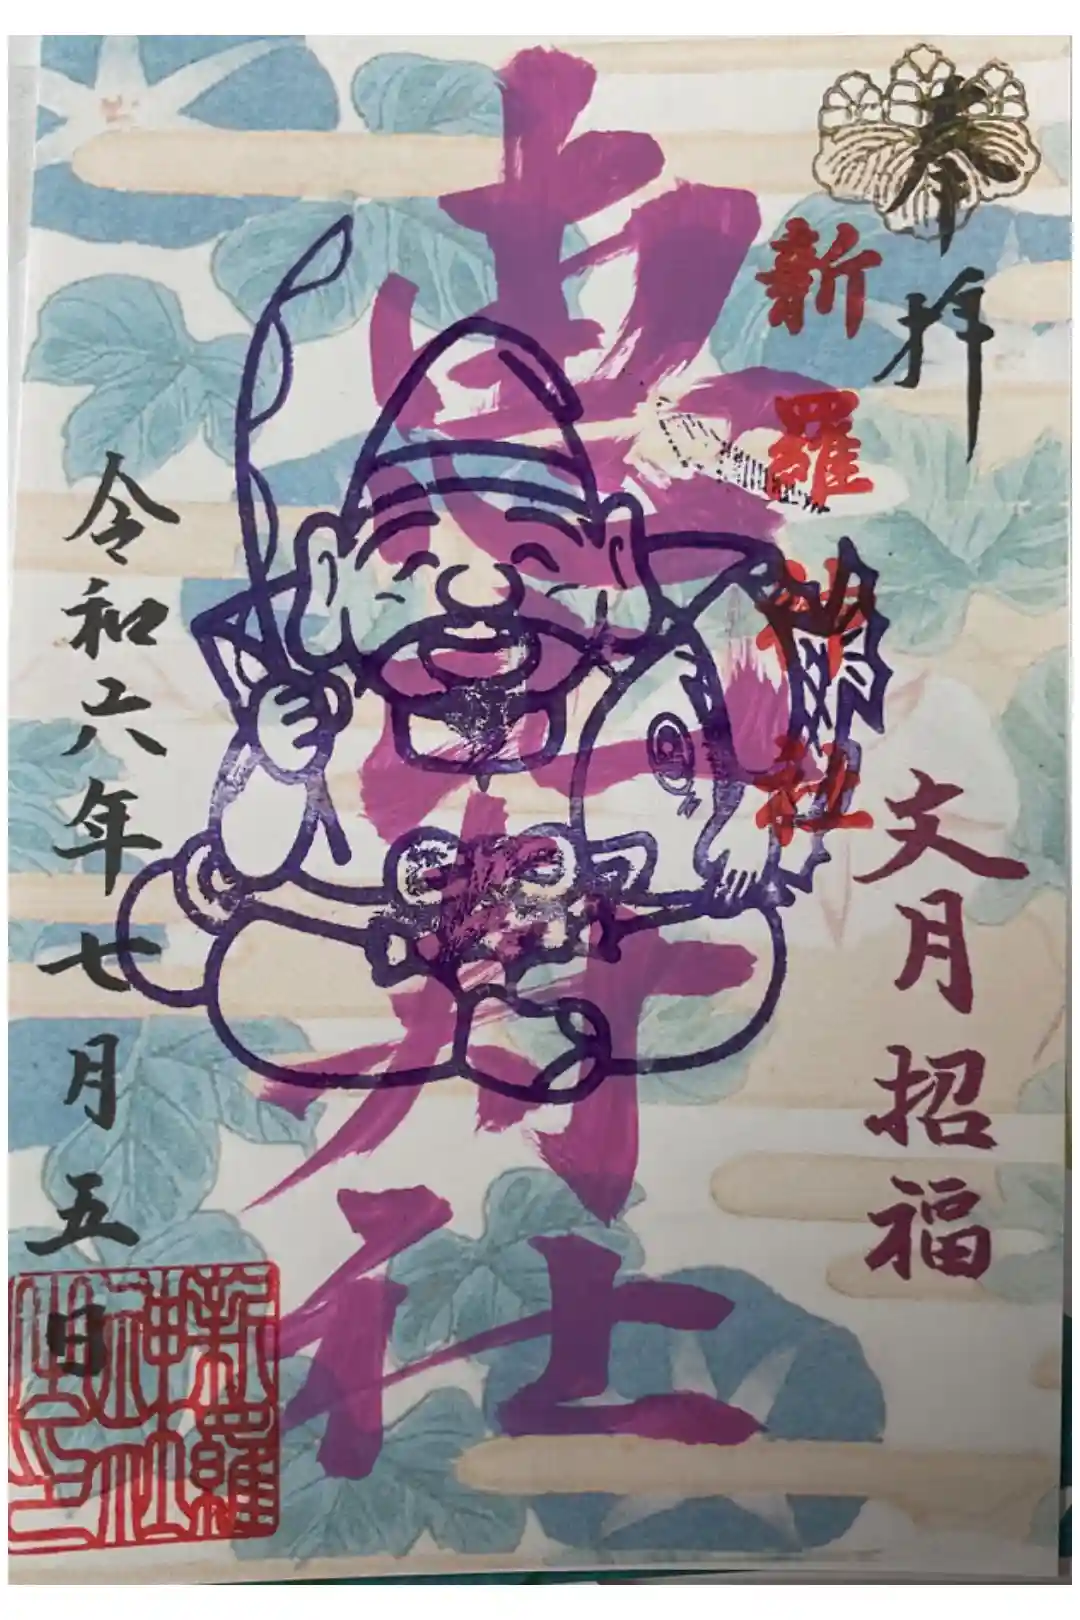 奉拝
新羅神社
文月招福
社
令和六年七月五日
新羅
神社
之印